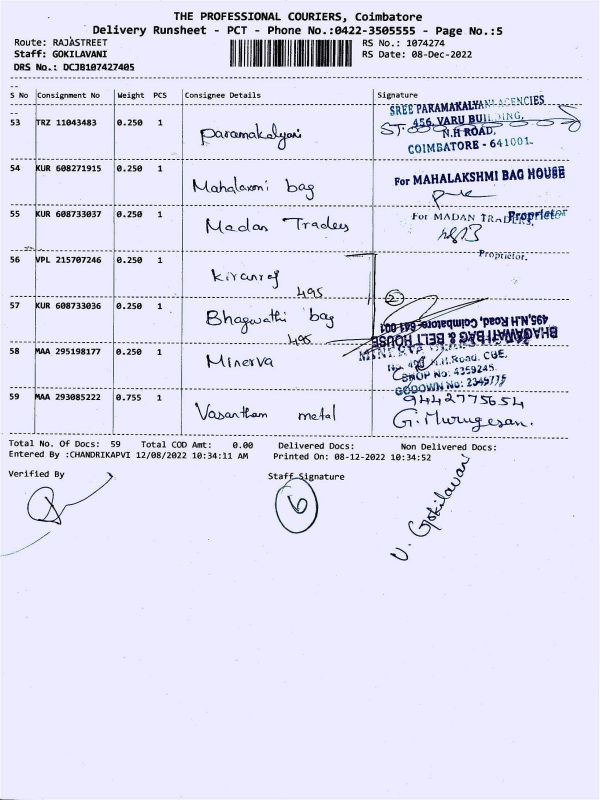 THE PROFESSIONAL COURIERS, Coimbatore
Delivery Runsheet - PCT - Phone No.:0422-3505555 - Page No.:5
Route: RAJASTREET
RS No.: 1074274
Staff: GOKILAVANI
RS Date: 08-Dec-2022
DRS No.: DCJB107427405
S No Consignment No Weight PCS Consignee Details Signature
SREE PARAMAKALYANI AGENCIES
53 TRZ 11043483 0.250 1 Paramakalyani
456, VARU BUILDING,
N.H ROAD,
COIMBATORE - 641001.
54 KUR 608271915 0.250 1 Mahalaxmi bag
For MAHALAKSHMI BAG HOUSE
Proprietor
55 KUR 608733037 0.250 1 Madan Traders
For MADAN TRADERS,
Proprietor.
56 VPL 215707246 0.250 1 Kiranraj
495
2
57 KUR 608733036 0.250 1 Bhagwathi bag
495
BHAGAWATI BAG & BELT HOUSE
495,N.H.Road, Coimbatore-641 001
58 MAA 295198177 0.250 1 Minerva
MINERVA
N.H.Road, CBE.
SHOP No: 4359245
GODOWN No: 2349775
59 MAA 293085222 0.755 1 Vasantham metal
9442775654
G. Murugesan.
Total No. Of Docs: 59 Total COD Amt: 0.00 Delivered Docs: Non Delivered Docs:
Entered By :CHANDRIKAPVI 12/08/2022 10:34:11 AM Printed On: 08-12-2022 10:34:52
Verified By Staff Signature
6
V. Gokilavani